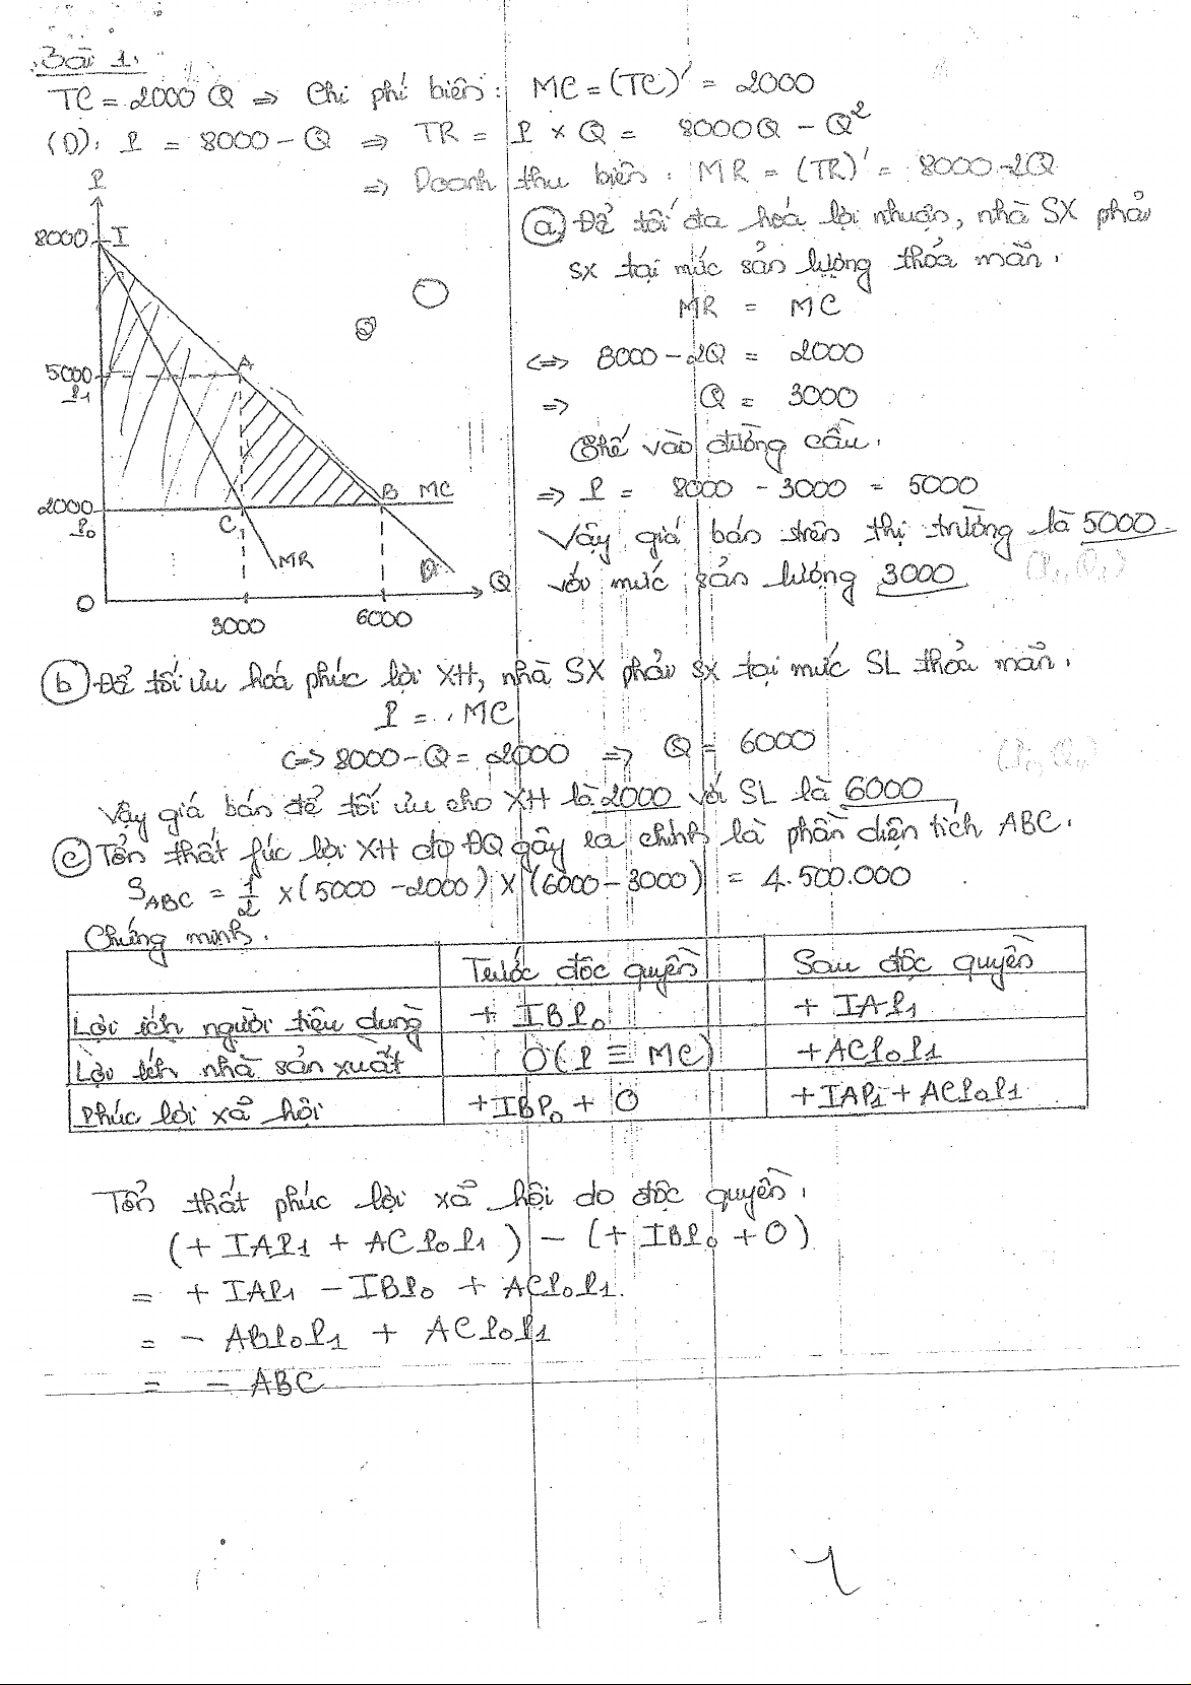 Bài 1.
TC = 2000 Q => Chi phí biên: MC = (TC)' = 2000
(D): P = 8000 - Q => TR = P x Q = 8000Q - Q²
=> Doanh thu biên: MR = (TR)' = 8000 - 2Q
P
8000 I
5000 A
P1
2000 B MC
P0 C
MR D Q
O 3000 6000
(a) Để tối đa hoá lợi nhuận, nhà SX phải
sx tại mức sản lượng thỏa mãn:
MR = MC
<=> 8000 - 2Q = 2000
=> Q = 3000
Thế vào đường cầu:
=> P = 8000 - 3000 = 5000
Vậy giá bán trên thị trường là 5000
với mức sản lượng 3000 (P1, Q1)
(b) Để tối ưu hoá phúc lợi XH, nhà SX phải sx tại mức SL thỏa mãn:
P = MC
<=> 8000 - Q = 2000 => Q = 6000
(P0, Q0)
Vậy giá bán để tối ưu cho XH là 2000 với SL là 6000
(c) Tổn thất fúc lợi XH do ĐQ gây ra chính là phần diện tích ABC.
S ABC = 1/2 x (5000 - 2000) x (6000 - 3000) = 4.500.000
Chứng minh:
Trước độc quyền Sau độc quyền
Lợi ích người tiêu dùng + IBP0 + IAP1
Lợi ích nhà sản xuất O (P ≡ MC) + ACP0P1
Phúc lợi xã hội + IBP0 + O + IAP1 + ACP0P1
Tổn thất phúc lợi xã hội do độc quyền:
(+ IAP1 + ACP0P1) - (+ IBP0 + O)
= + IAP1 - IBP0 + ACP0P1
= - ABP0P1 + ACP0P1
= - ABC